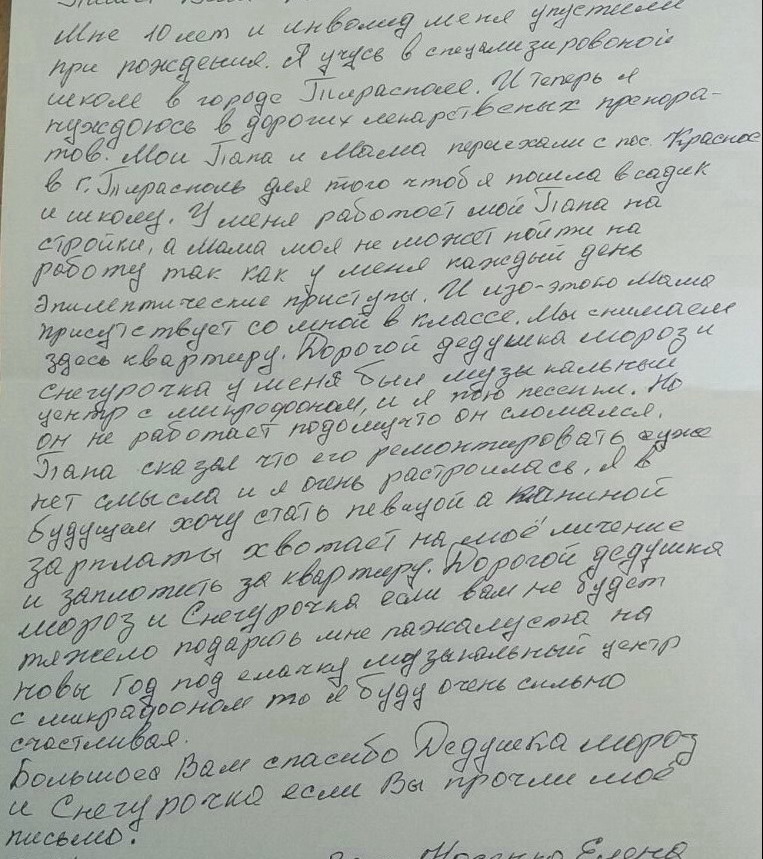 Мне 10 лет и инволид меня упустили
при рождения. Я учусь в специализировоной
школе в городе Тирасполе. И теперь я
нуждоюсь в дорогих лекарственых препора-
тов. Мои Папа и Мама переехали с пос. Красное
в г. Тирасполь для того чтоб я пошла в садик
и школу. У меня работоет мой Папа на
стройки, а Мама моя не может пойти на
роботу так как у меня каждый день
эпилептические приступы. И изо-этого Мама
присутствует со мной в классе. Мы снимаем
здесь квартиру. Дорогой дедушка мороз и
снегурочка у меня был музыкальный
центр с микрофоном, и я пою песенки. Но
он не работает подомучто он сломался.
Папа сказал что его ремонтировать уже
нет смысла и я очень растроилась. Я в
будущем хочу стать певицой а папиной
зарплаты хвотает на моё личение
и заплотить за квартиру. Дорогой дедушка
мороз и Снегурочка если вам не будет
тяжело подарить мне пажалуста на
новы Год под елачку музыкальный центр
с микрафоном то я буду очень сильно
счастливая.
Большоеа Вам спасибо Дедушка мороз
и Снегурочка если Вы прочли моё
письмо.
Елена